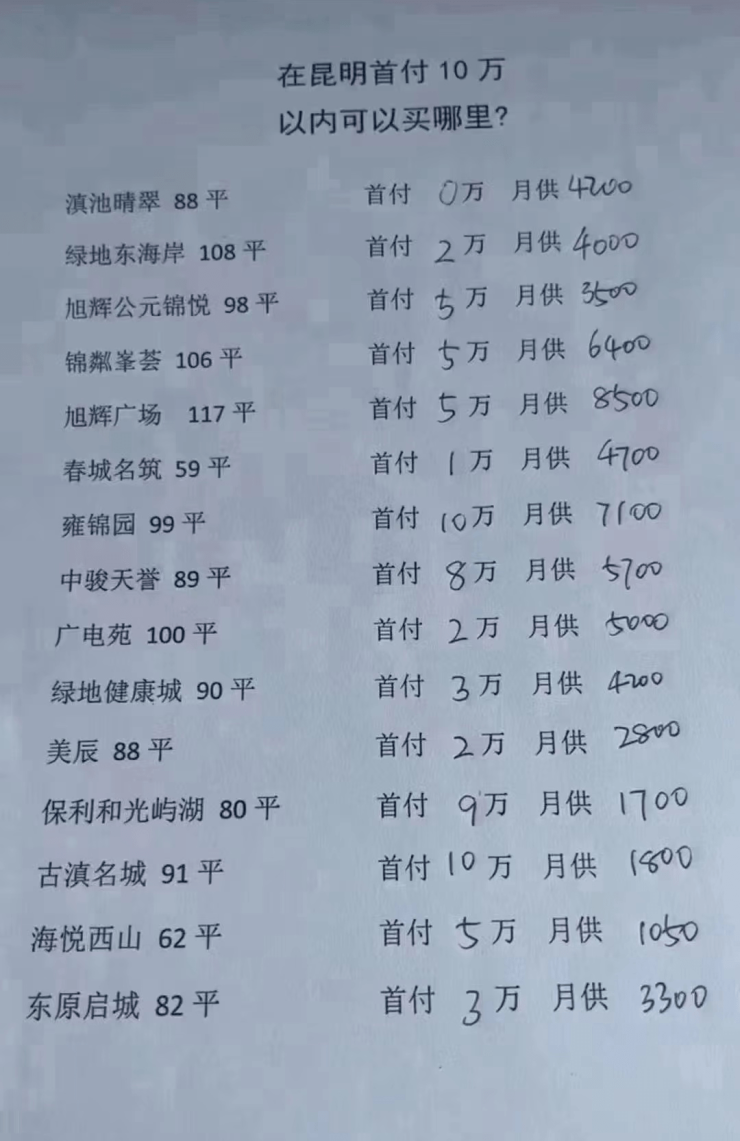 在昆明首付 10 万
以内可以买哪里?
滇池晴翠 88 平 首付 0万 月供 4200
绿地东海岸 108 平 首付 2 万 月供 4000
旭辉公元锦悦 98 平 首付 5 万 月供 3500
锦粼峯荟 106 平 首付 5 万 月供 6400
旭辉广场 117 平 首付 5 万 月供 8500
春城名筑 59 平 首付 1 万 月供 4700
雍锦园 99 平 首付 10 万 月供 7100
中骏天誉 89 平 首付 8 万 月供 5700
广电苑 100 平 首付 2 万 月供 5000
绿地健康城 90 平 首付 3 万 月供 4200
美辰 88 平 首付 2 万 月供 2800
保利和光屿湖 80 平 首付 9 万 月供 1700
古滇名城 91 平 首付 10 万 月供 1800
海悦西山 62 平 首付 5 万 月供 1050
东原启城 82 平 首付 3 万 月供 3300